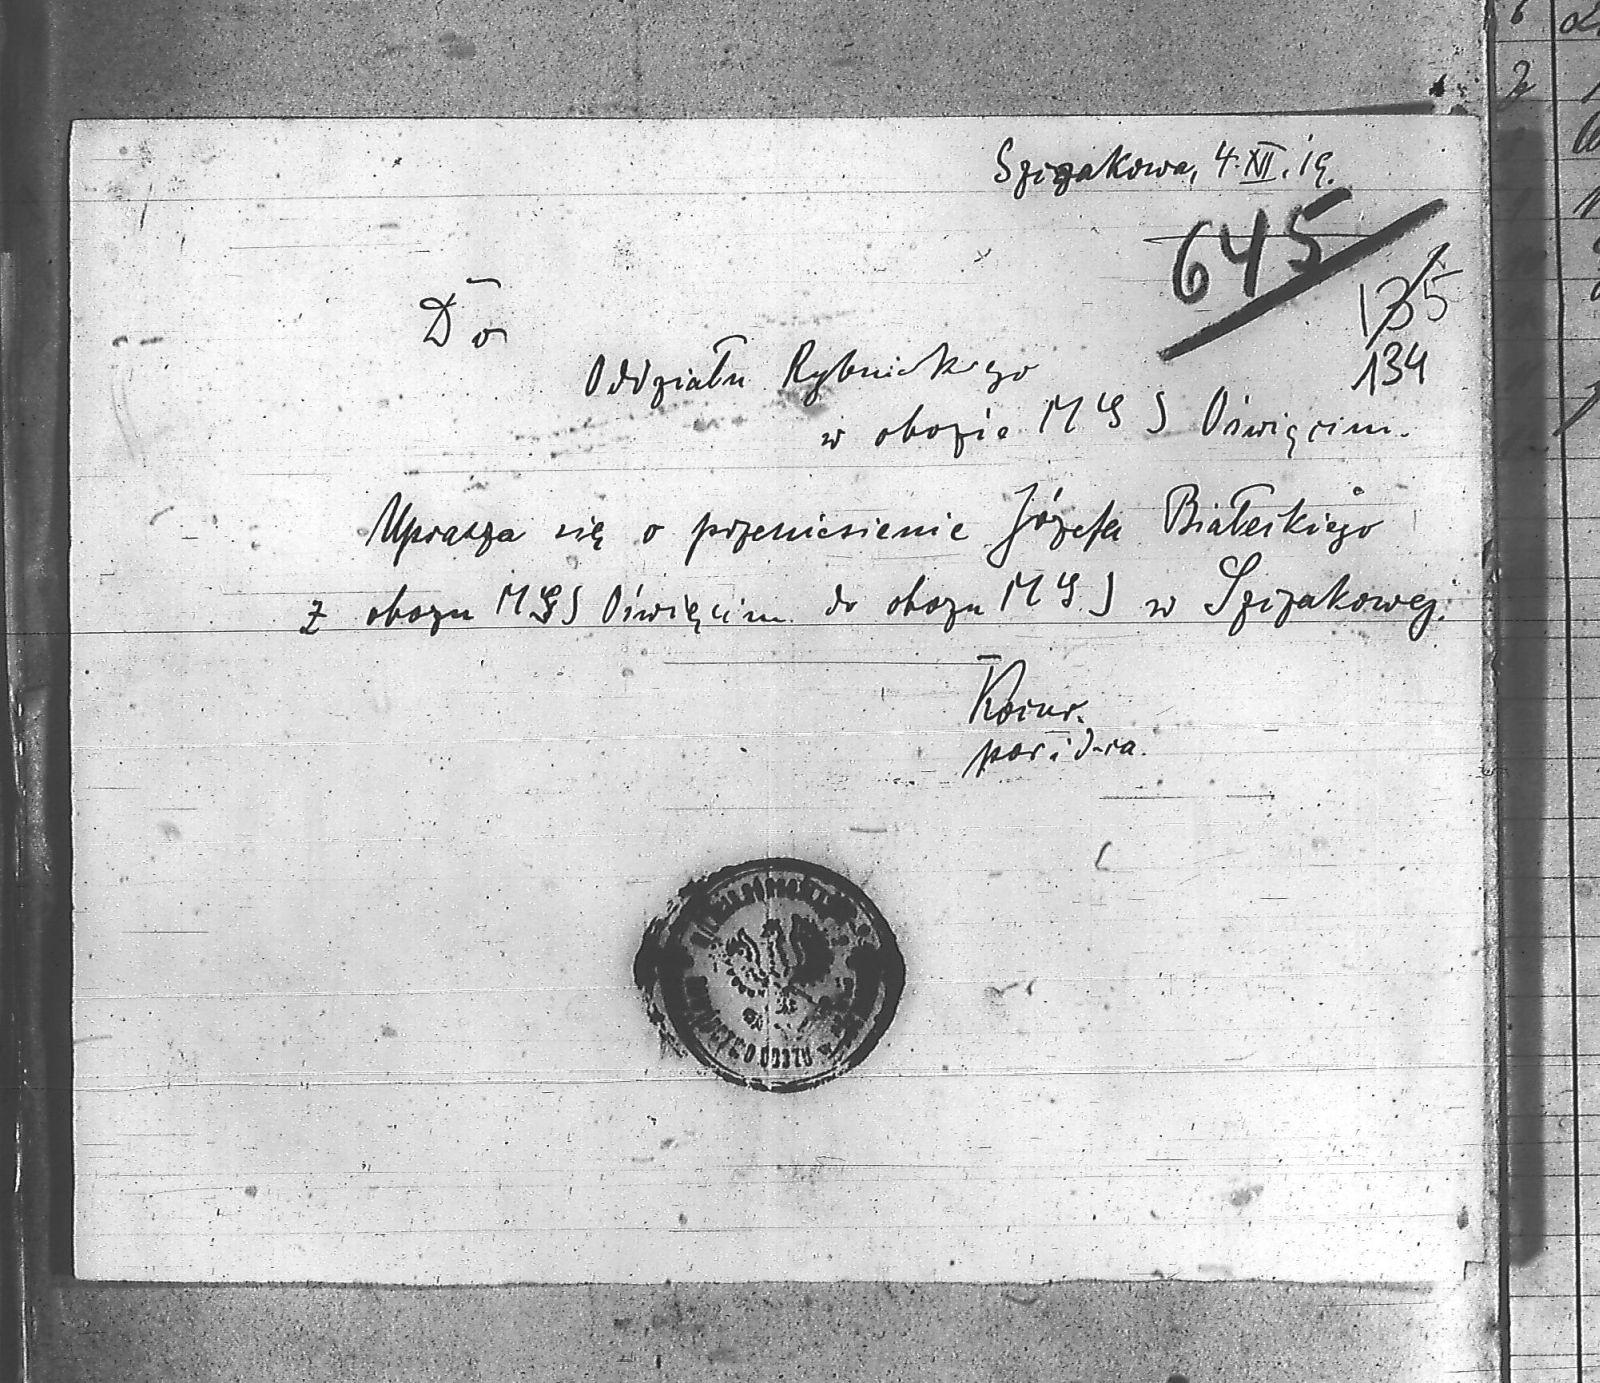 Szczakowa, 4.XII.19.
645
135
134
Do
Oddziału Rybnickiego
w obozie M G S Oświęcim.
Uprasza się o przeniesienie Józefa Białeckiego
z obozu M G S Oświęcim do obozu M G S w Szczakowej.
Kocur.
por i d-ca.